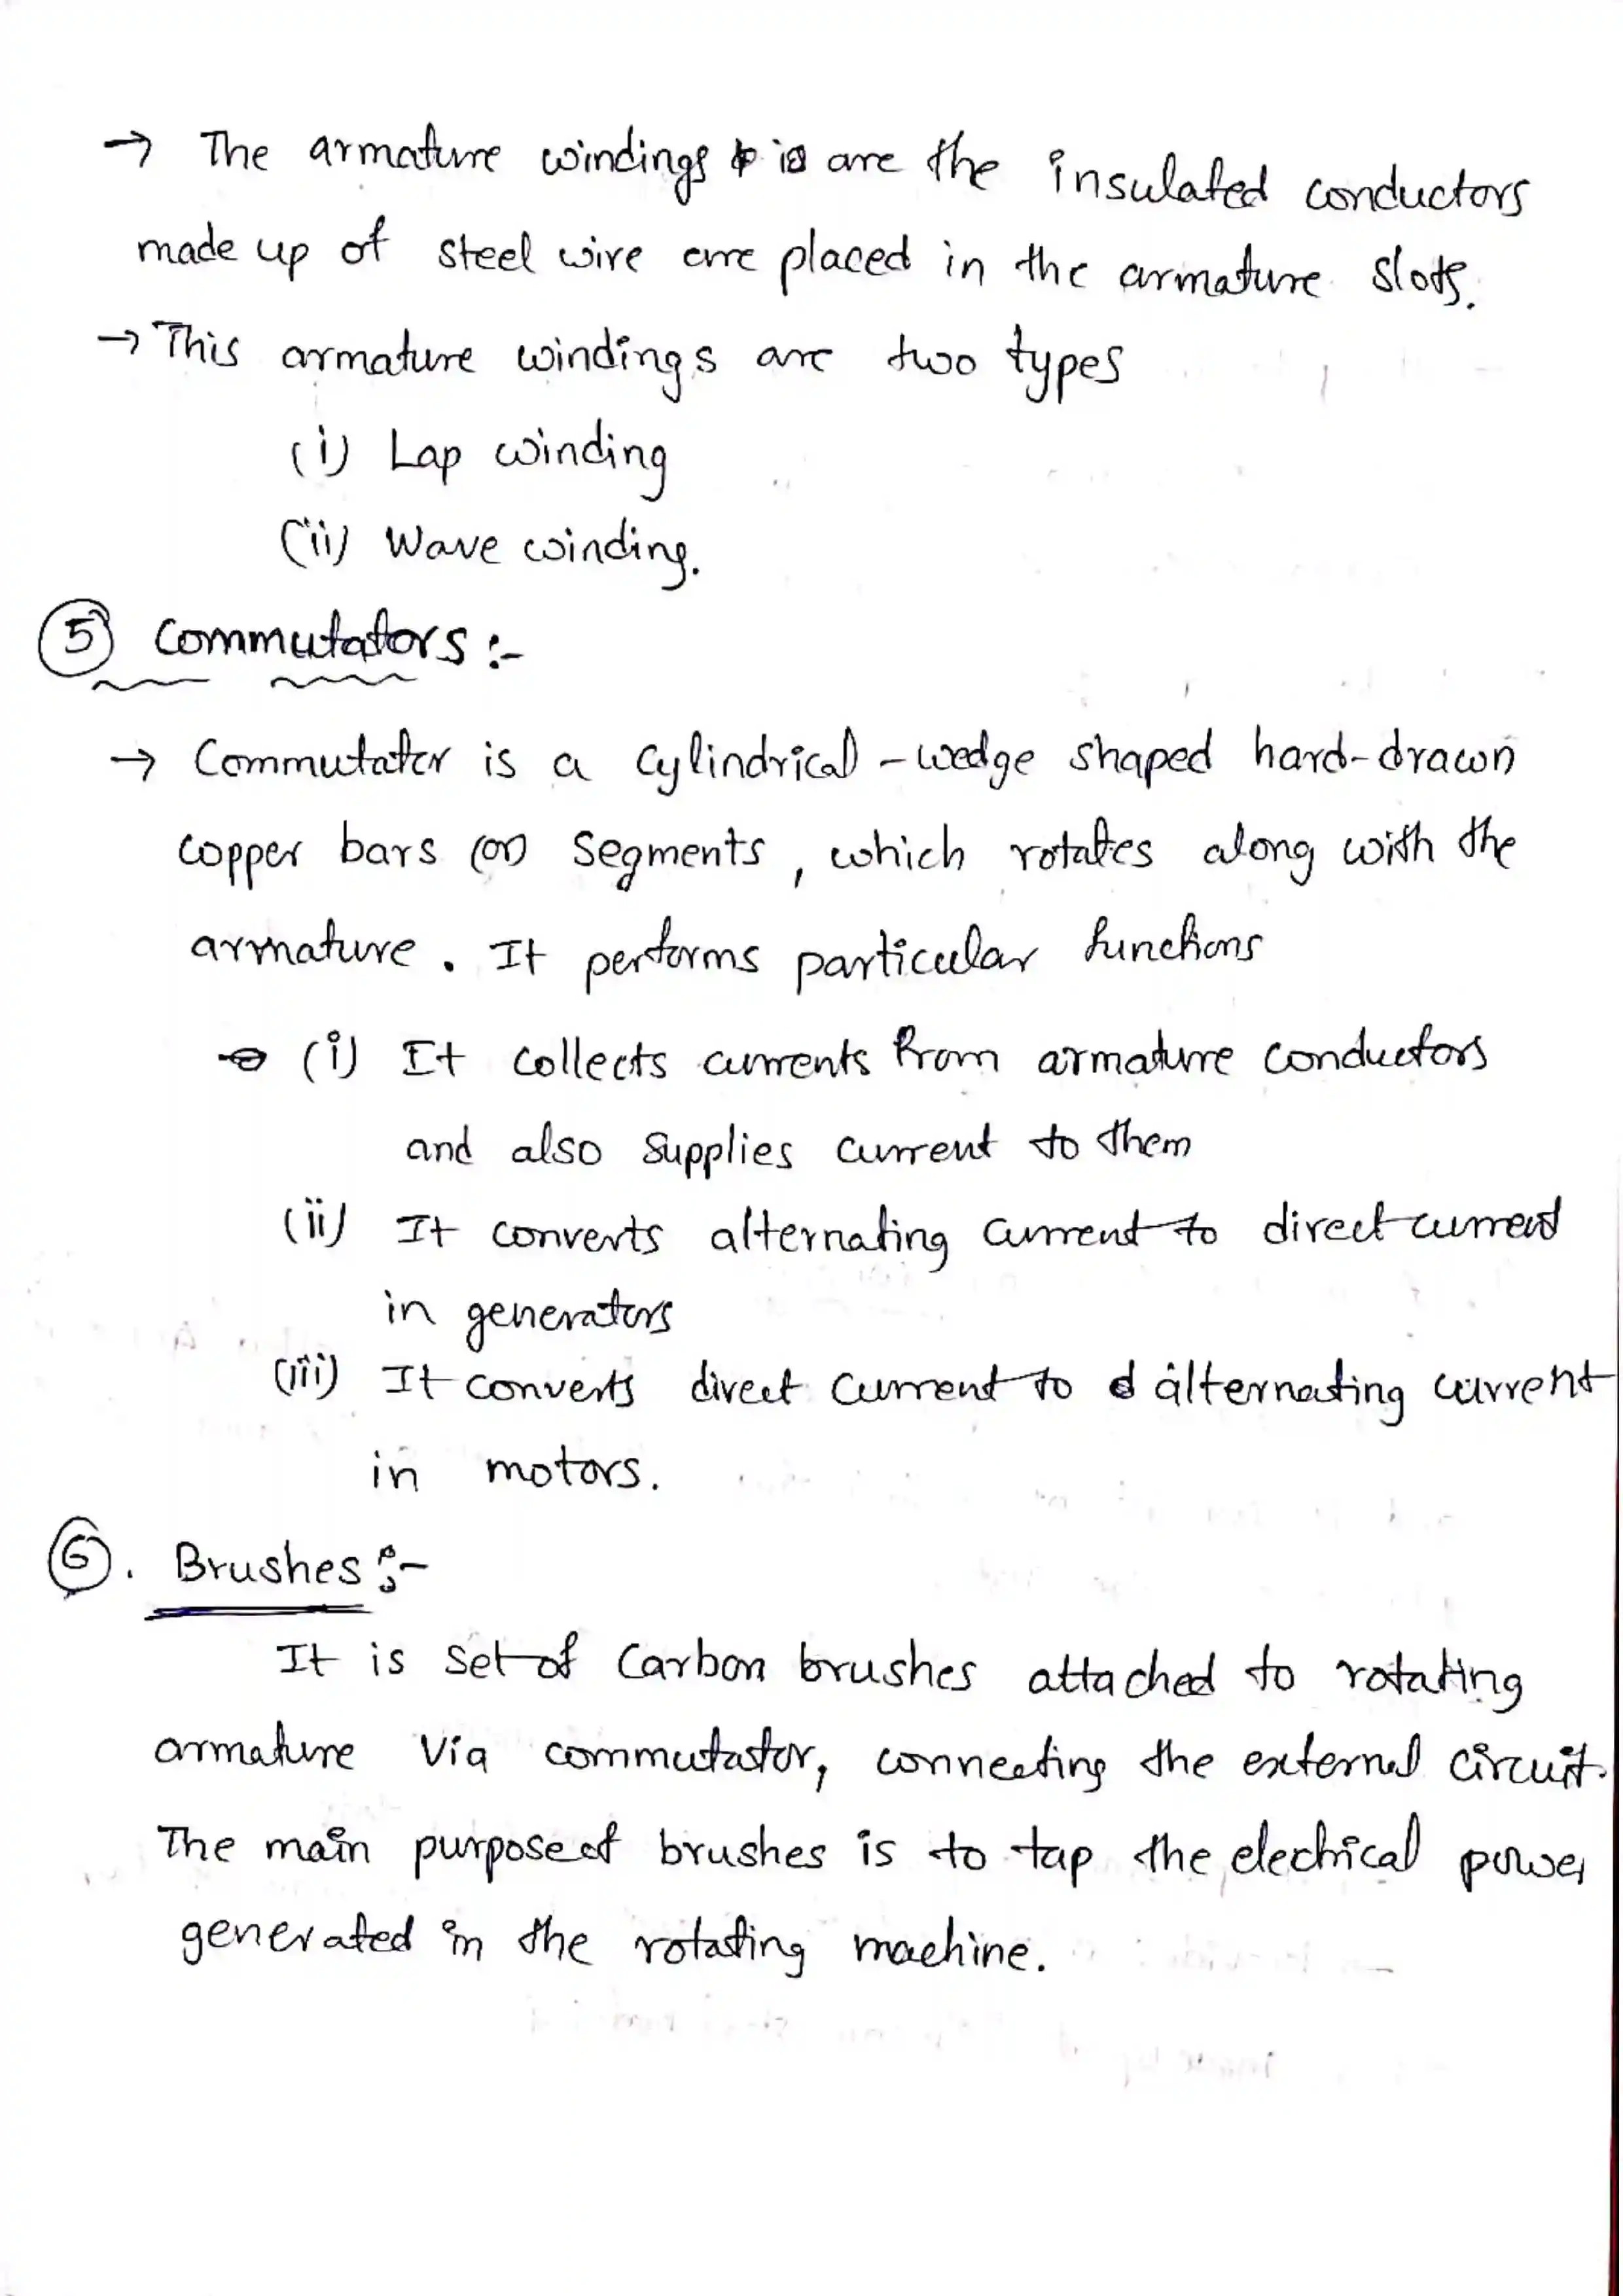 → The armature windings is are the insulated conductors
made up of steel wire are placed in the armature slots.
→ This armature windings are two types
(i) Lap winding
(ii) Wave winding.
5 Commutators :-
→ Commutator is a cylindrical - wedge shaped hard-drawn
copper bars (or) segments, which rotates along with the
armature. It performs particular functions
(i) It collects currents from armature conductors
and also supplies current to them
(ii) It converts alternating current to direct current
in generators
(iii) It converts direct current to alternating current
in motors.
6. Brushes :-
It is set of Carbon brushes attached to rotating
armature via commutator, connecting the external circuit.
The main purpose of brushes is to tap the electrical power
generated in the rotating machine.